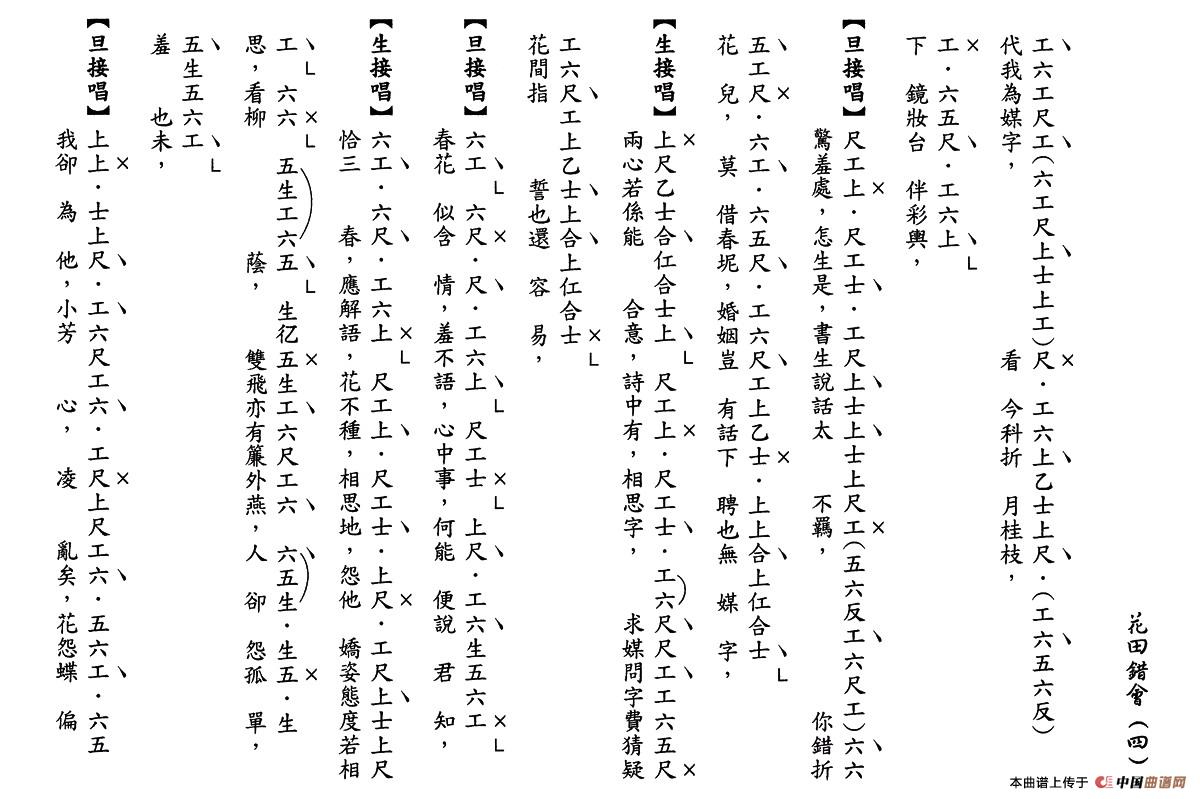 花田錯會（四）
工六工尺工（六工尺上士上工）尺．工六上乙士上尺．（工六五六反）
代我為媒字，看今科折月桂枝，
工．六五尺．工六上
下鏡妝台伴彩輿，
【旦接唱】尺工上．尺工士．工尺上士上士上尺工（五六反工六尺工）六六
驚羞處，怎生是，書生說話太不羈，你錯折
五工尺．六工．六五尺．工六尺工上乙士．上上合上仜合士
花兒，莫借春坭，婚姻豈有話下聘也無媒字，
【生接唱】上尺乙士合仜合士上尺工上．尺工士．工六尺尺工工六五尺
兩心若係能合意，詩中有，相思字，求媒問字費猜疑
工六尺工上乙士上合上仜合士
花間指誓也還容易，
【旦接唱】六工六尺．尺．工六上尺工士上尺．工六生五六工
春花似含情，羞不語，心中事，何能便說君知，
【生接唱】六工．六尺．工六上尺工上．尺工士．上尺．工尺上士上尺
恰三春，應解語，花不種，相思地，怨他嬌姿態度若相
工六六五生工六五生亿五生工六尺工六六五生．生五．生
思，看柳蔭，雙飛亦有簾外燕，人卻怨孤單，
五生五六工
羞也未，
【旦接唱】上上．士上尺．工六尺工六．工尺上尺工六．五六工．六五
我卻為他，小芳心，凌亂矣，花怨蝶偏
本曲谱上传于 中国曲谱网